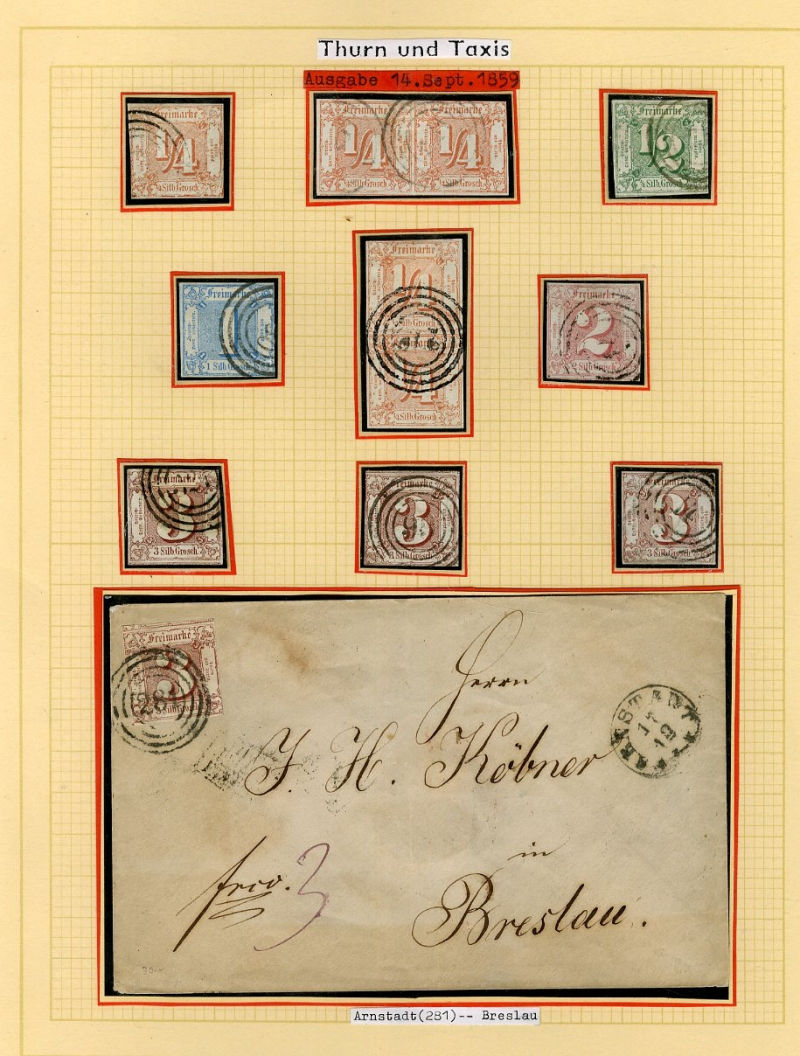 Thurn und Taxis
Ausgabe 14.Sept.1859
Freimarke
1/4
1/4 Silb.Grosch
Freimarke Freimarke
1/4 1/4
1/4 Silb.Grosch 1/4 Silb.Grosch
Freimarke
1/2
1/2 Silb.Grosch
Freimarke
1
1 Silb.Grosch
Freimarke
1/4
1/4 Silb.Grosch
Freimarke
1/4
1/4 Silb.Grosch
Freimarke
2
2 Silb.Grosch
3
3 Silb.Grosch
Freimarke
3
3 Silb.Grosch
Freimarke
3
3 Silb.Grosch
Freimarke
3
3 Silb.Grosch
281
Herrn
ARNSTADT
17
12
J. H. Köbner
in
frco. 3
Breslau.
Arnstadt(281)-- Breslau